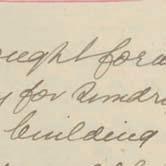 ought forw
y for Sundri
building